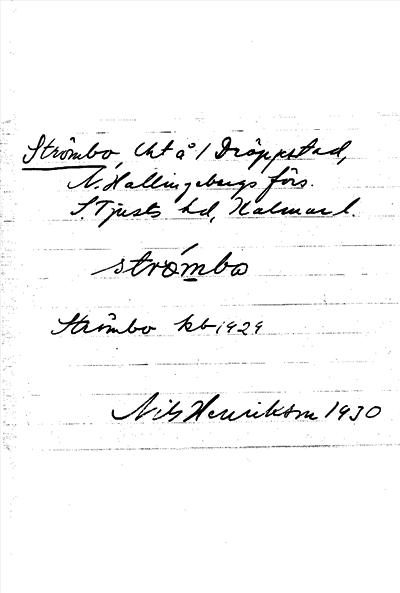 Strömbo, lht å 1 Dröppstad,
N. Hallingebergs förs.
S. Tjusts hd, Kalmar l.
strö́mbo
Strömbo kb 1929
Nils Henrikson 1930